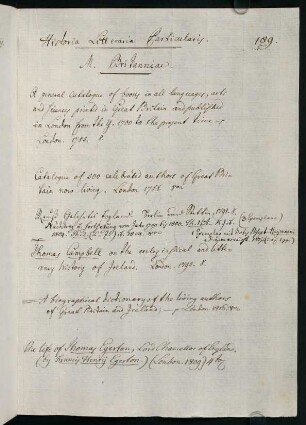 Historia Litteraria Particularis. 189.
A. Britannicae.
A general catalogue of books in all languages, arts
and sciences printed in Great Britain and published
in London from the y. 1700 to the present time
London. 1785. 8.
Catalogue of 500 celebrated authors of Great Bri-
tain now living. London 1788.
Gelehrtes England. Berlin und Stettin, 1791. 8.
Nachtrag u. Fortsetzung vom Jahr 1790 bis 1803.
1804.
Thomas Campbell on the ecclesiastical and litte-
rary history of Ireland. London. 1790. 8.
A biographical dictionary of the living authors
of Great Britain and Ireland; London 1816. 8.
The life of Thomas Egerton, Lord Chancellor of England,
(by Francis Henry Egerton) (London. 1809)